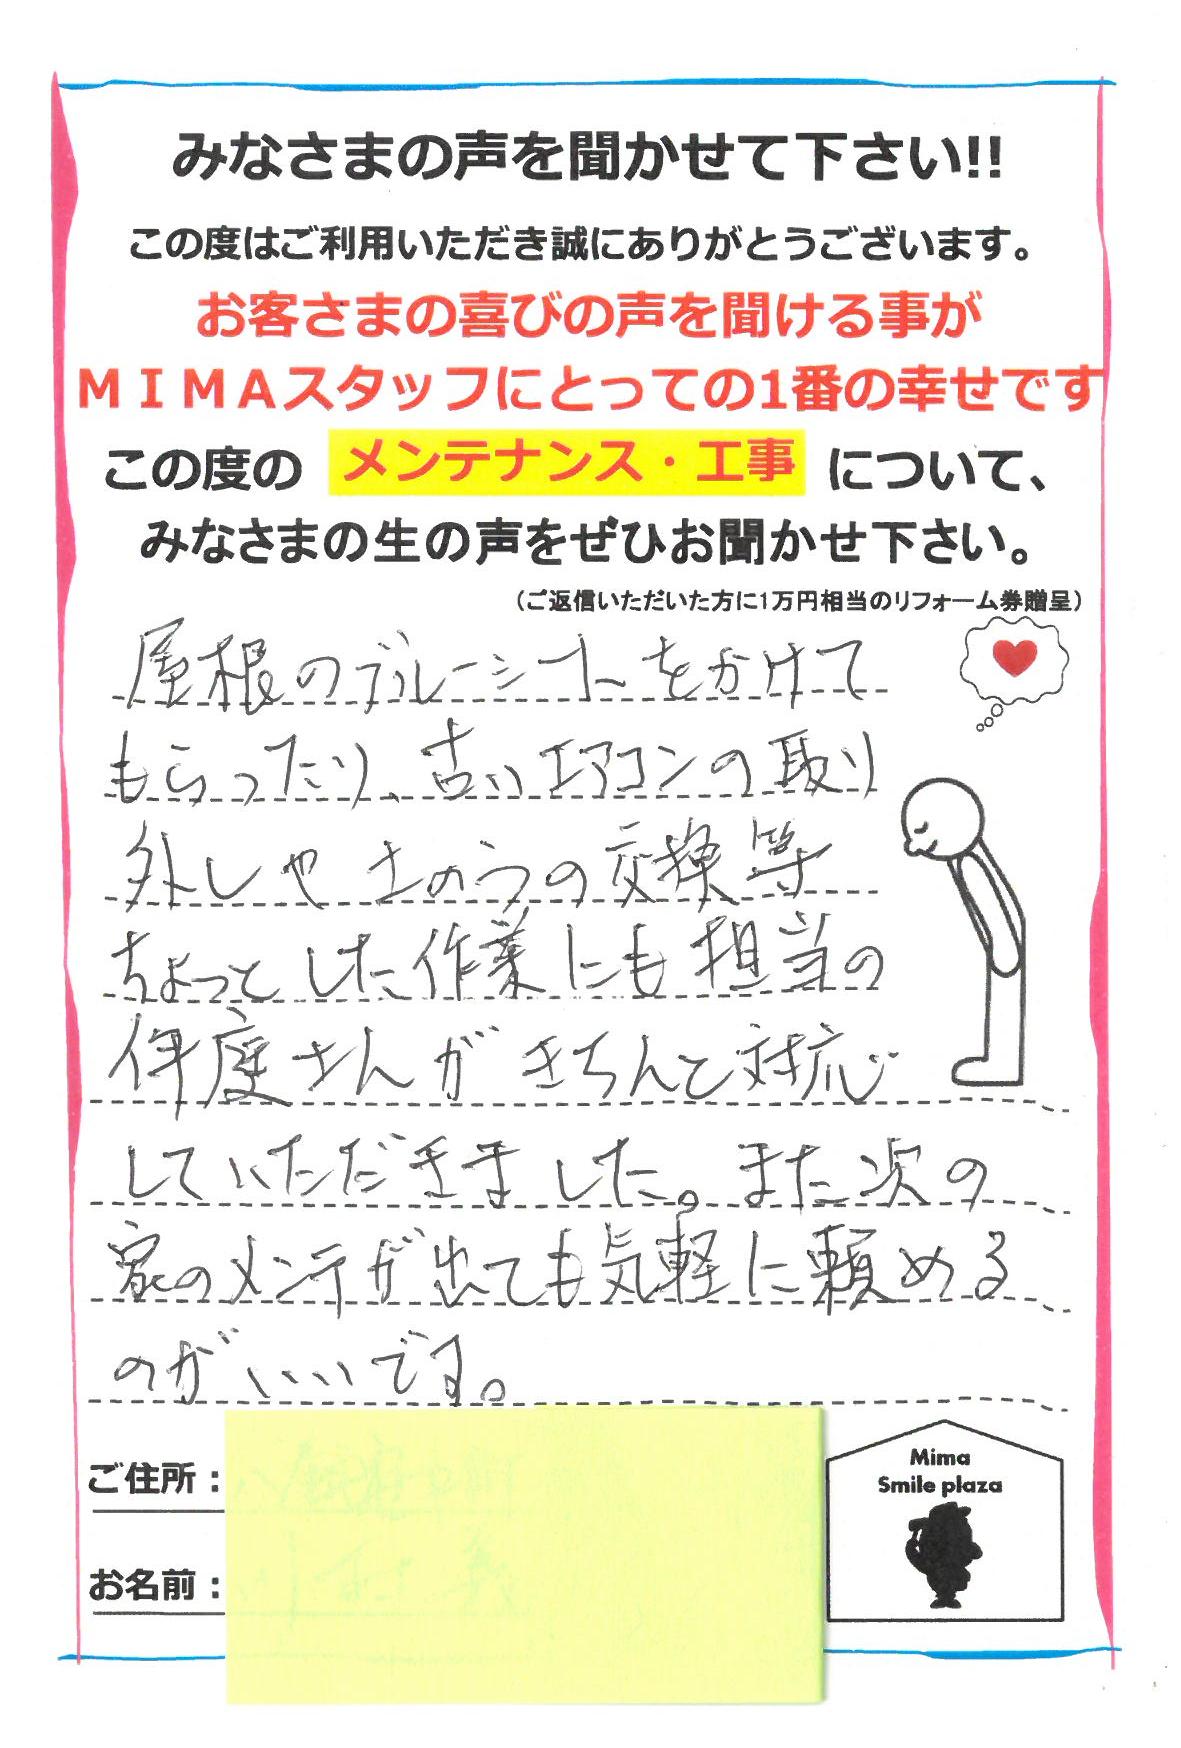 みなさまの声を聞かせて下さい!!
この度はご利用いただき誠にありがとうございます。
お客さまの喜びの声を聞ける事が
MIMAスタッフにとっての1番の幸せです
この度の メンテナンス・工事 について、
みなさまの生の声をぜひお聞かせ下さい。
（ご返信いただいた方に1万円相当のリフォーム券贈呈）
屋根のブルーシートをかけて
もらったり、古いエアコンの取り
外しや さのうの交換等
ちょっとした作業にも担当の
伊度さんがきちんと対応
していただきました。また次の
家のメンテが出ても気軽に頼める
のがいいです。
ご住所：
お名前：
Mima
Smile plaza